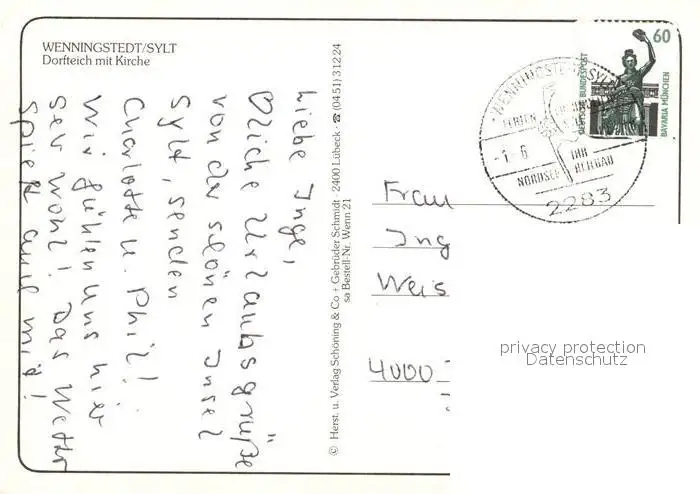 WENNINGSTEDT/SYLT
Dorfteich mit Kirche
Liebe Inge,
Bliche Urlaubsgrüße
von der schönen Insel
Sylt, senden
Charlotte u. Phil!
Wir fühlen uns hier
sehr wohl! Das Wetter
spielt auch mit!
© Herst. u. Verlag Schöning & Co + Gebrüder Schmidt · 2400 Lübeck · ☎ (04 51) 3 12 24
sa Bestell-Nr. Wenn 21
60
DEUTSCHE BUNDESPOST
BAVARIA MÜNCHEN
WENNINGSTEDT SYLT
FERIEN
-1. 6
IHR
NORDSEE HEILBAD
2283
Frau
Ing
Weis
4000
privacy protection
Datenschutz